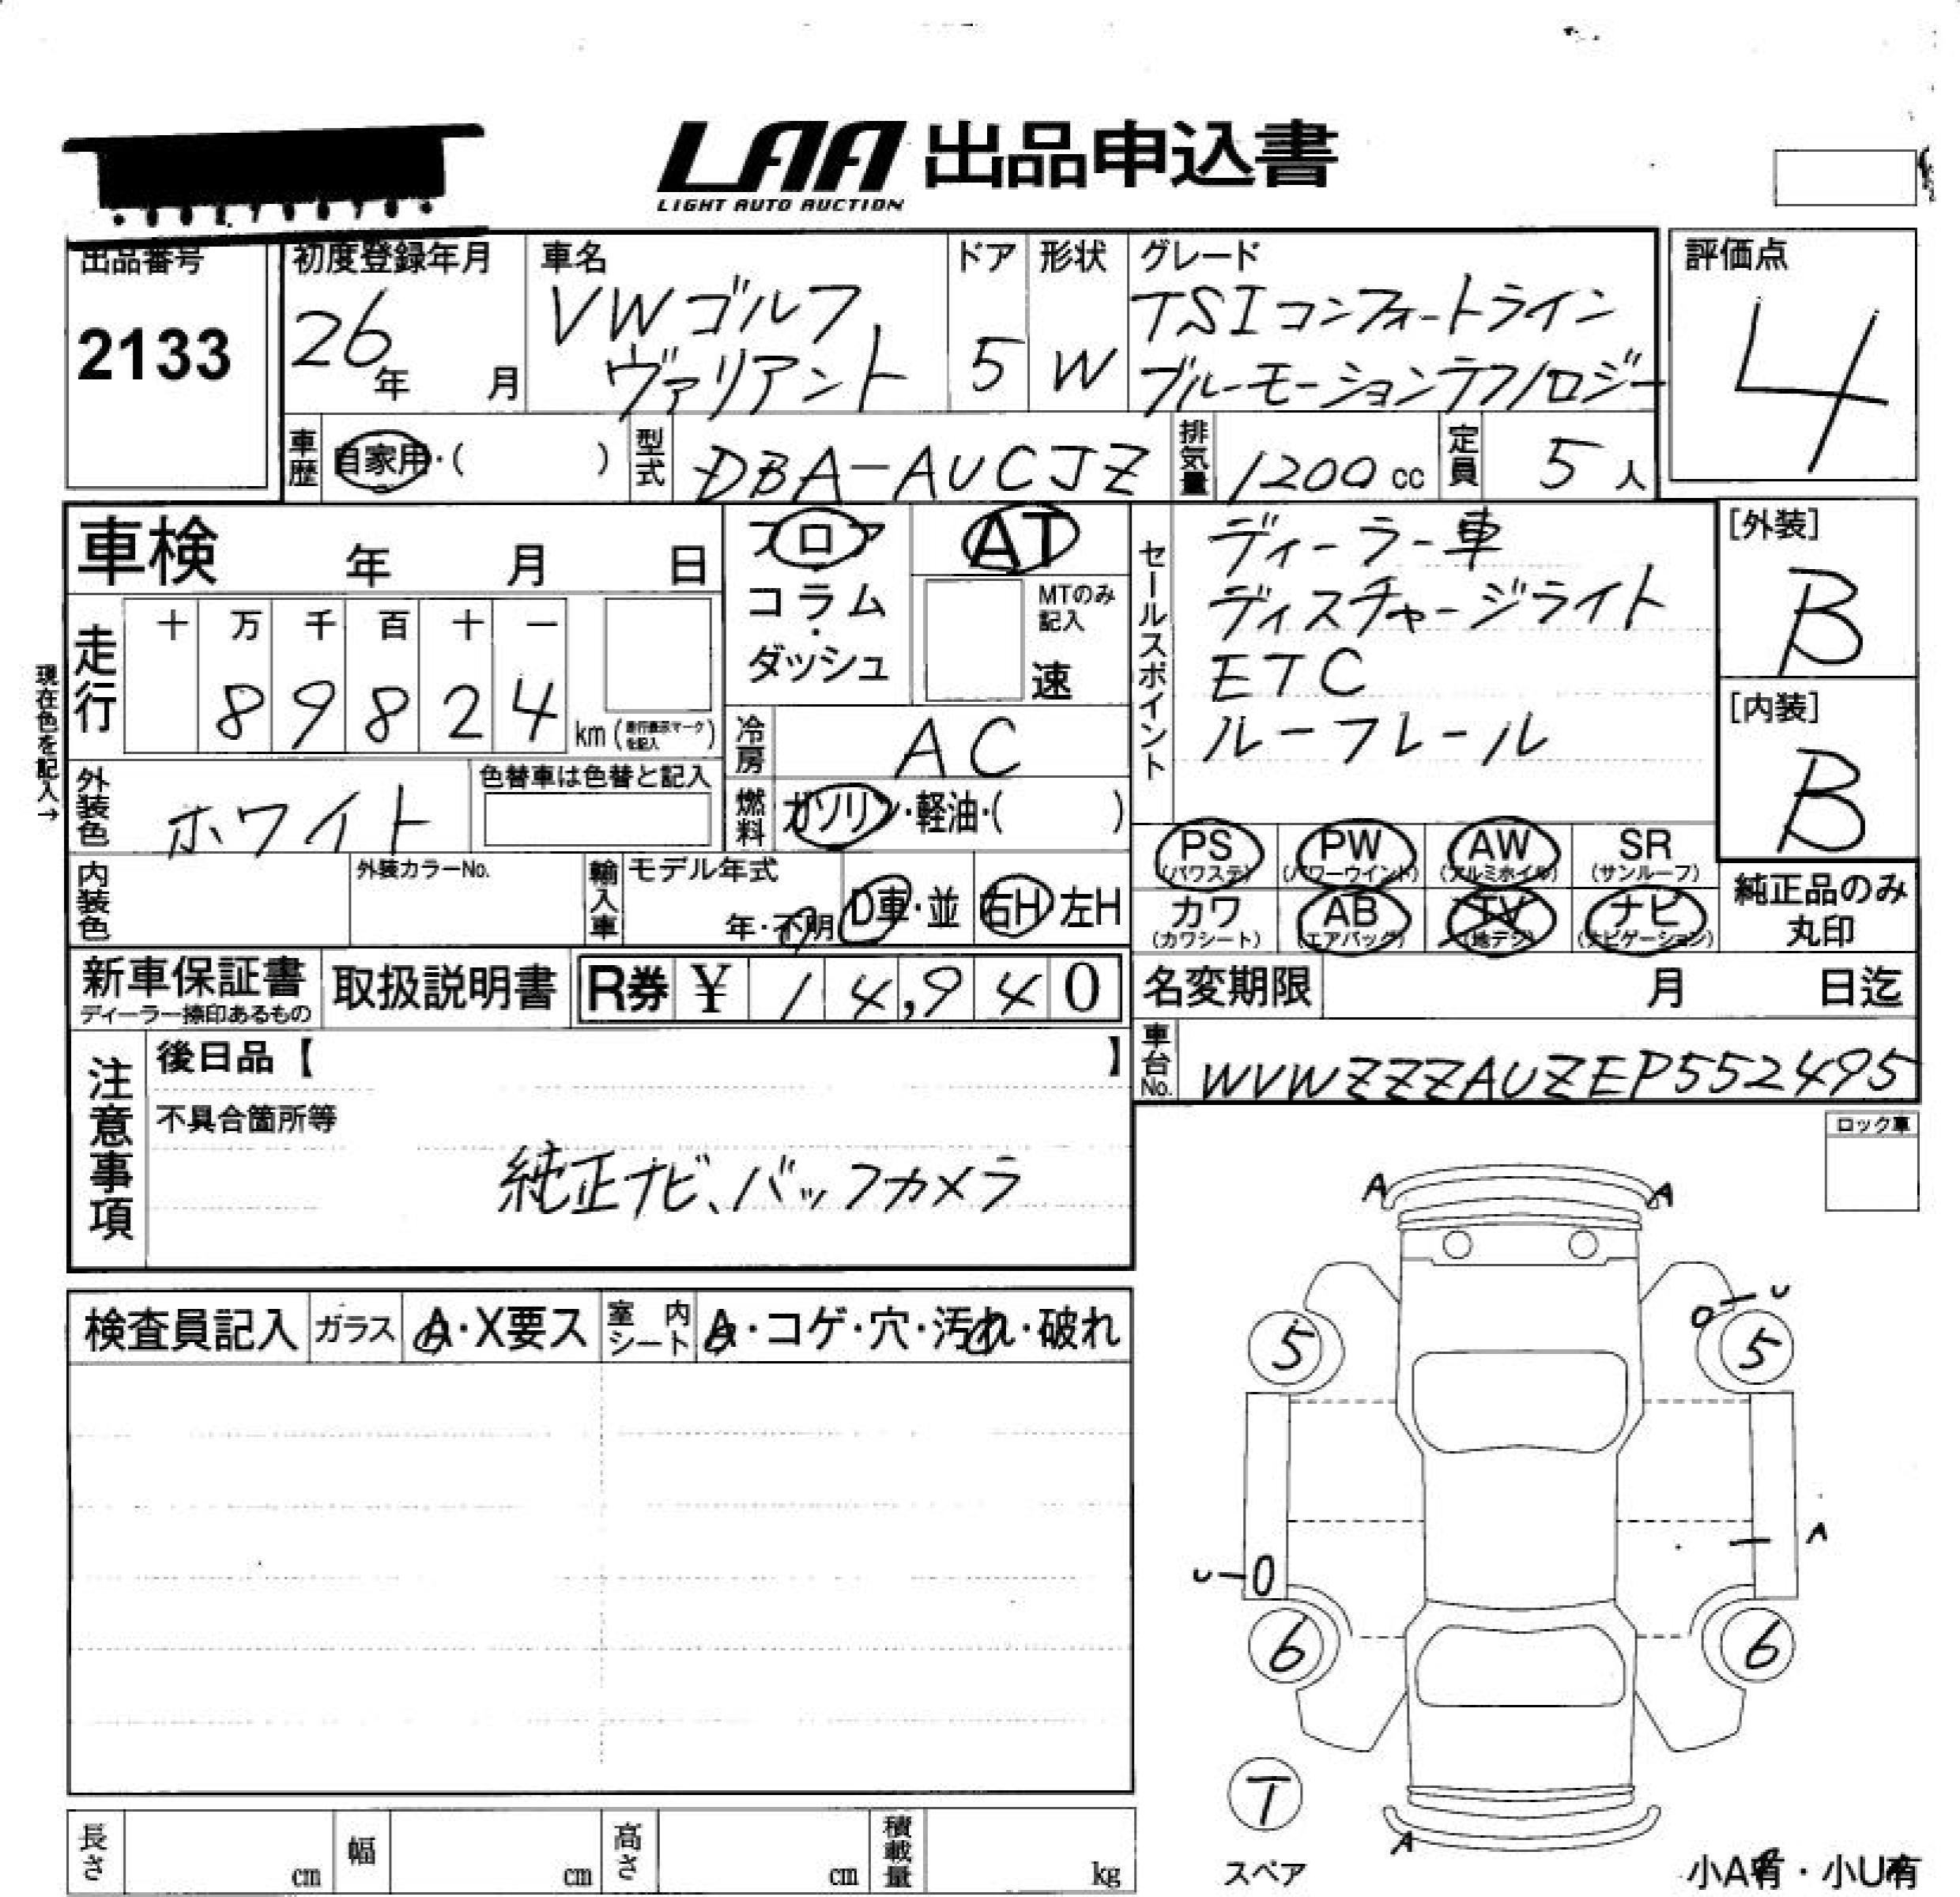 LAA 出品申込書
LIGHT AUTO AUCTION
出品番号
2133
初度登録年月
26年 月
車名
VWゴルフ
ヴァリアント
ドア
5
形状
W
グレード
TSIコンフォートライン
ブルーモーションテクノロジー
評価点
4
車歴 自家用・( )
型式 DBA-AUCJZ
排気量 1200cc
定員 5人
車検 年 月 日
フロア
コラム
・
ダッシュ
AT
MTのみ
記入
速
セールスポイント
ディーラー車
ディスチャージライト
ETC
ルーフレール
[外装]
B
[内装]
B
現在色を記入→
走行
十 万 千 百 十 一
8 9 8 2 4 km (走行表示マークを記入)
冷房 AC
外装色 ホワイト
色替車は色替と記入
燃料 ガソリン・軽油・( )
PS (パワステ)
PW (パワーウインド)
AW (アルミホイル)
SR (サンルーフ)
内装色
外装カラーNo.
輸入車
モデル年式
年・不明
D車・並
右H 左H
カワ (カワシート)
AB (エアバッグ)
TV (地デジ)
ナビ (ナビゲーション)
純正品のみ
丸印
新車保証書
ディーラー捺印あるもの
取扱説明書
R券 ¥ 14,940
名変期限 月 日迄
車台No. WVWZZZAUZEP552495
注意事項
後日品【 】
不具合箇所等
純正ナビ、バックカメラ
ロック車
検査員記入
ガラス A・X要ス
室内シート A・コゲ・穴・汚れ・破れ
A A
U
5 5
A
U
6 6
T
スペア
A
小A有・小U有
長さ cm
幅 cm
高さ cm
積載量 kg